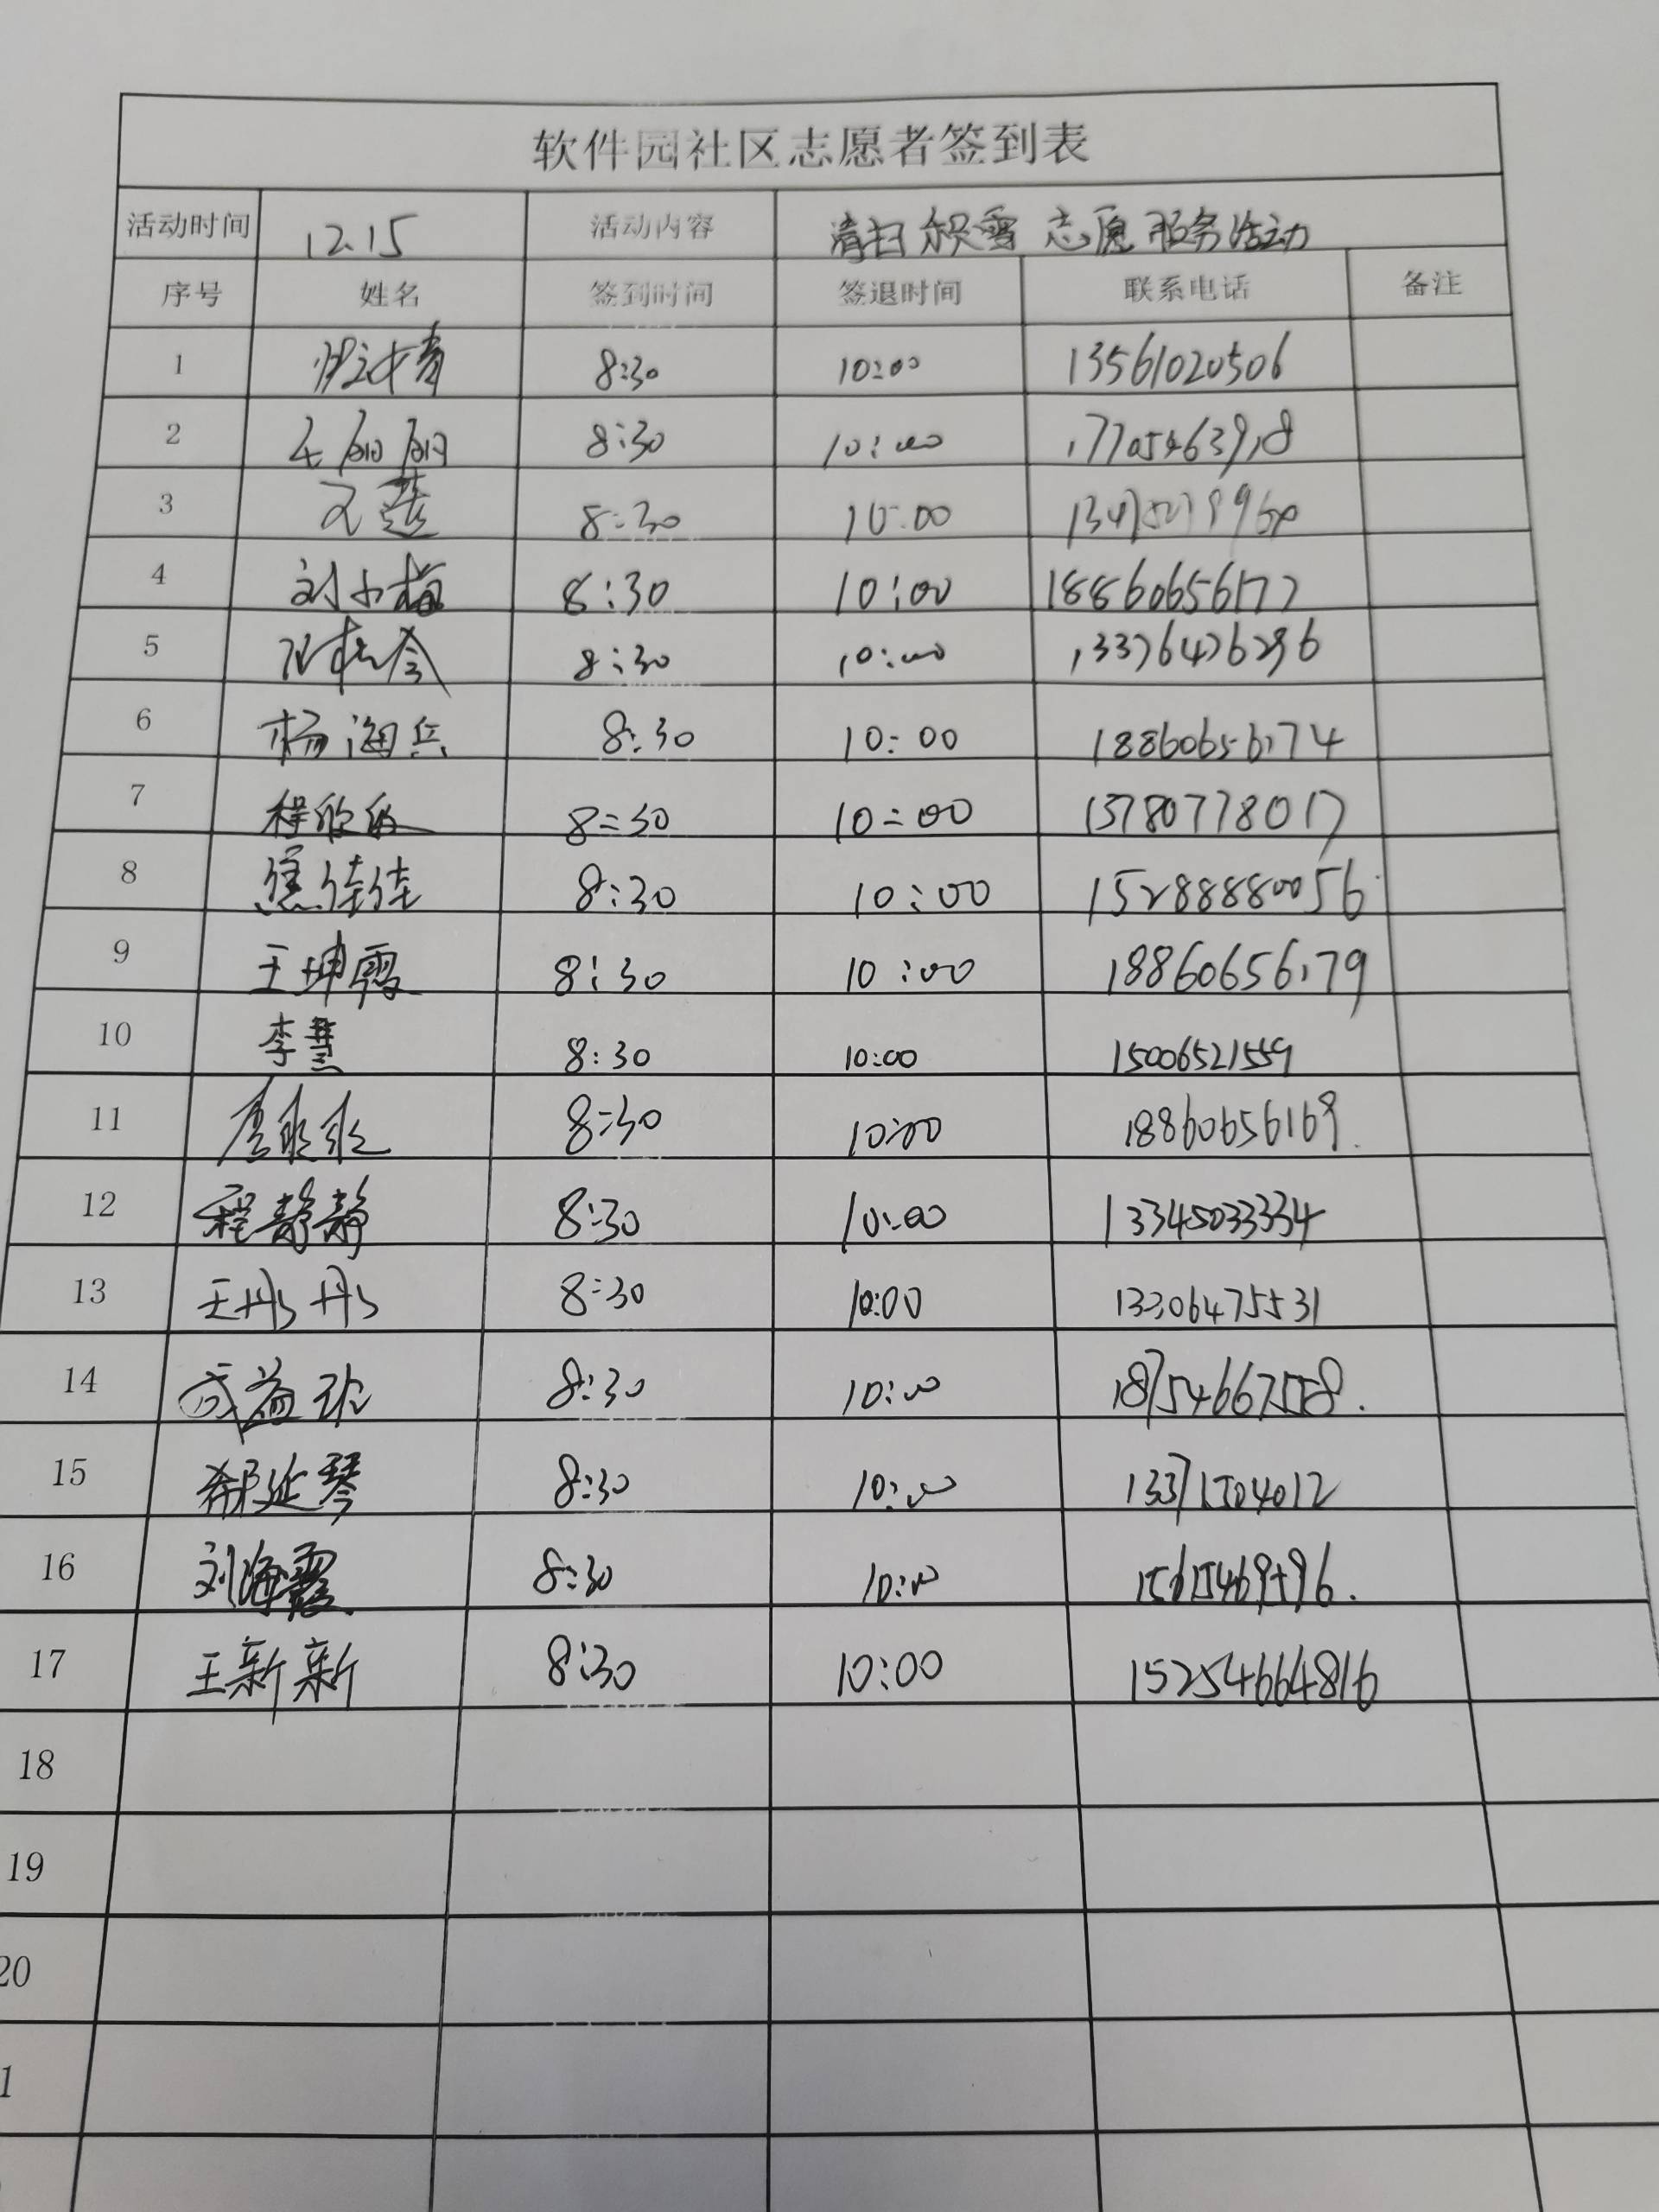 软件园社区志愿者签到表
活动时间 12.15 活动内容 清扫积雪 志愿服务活动
序号 姓名 签到时间 签退时间 联系电话 备注
1 8:30 10:00 13561020506
2 8:30 10:00 17705463918
3 8:30 10:00
4 刘小梅 8:30 10:00 18860656177
5 8:30 10:00 13376476296
6 杨海兵 8:30 10:00 18860656174
7 程欣欣 8:30 10:00 15780778017
8 焦佳佳 8:30 10:00 15288880056
9 王坤霞 8:30 10:00 18860656179
10 李慧 8:30 10:00 15006521559
11 8:30 10:00 18860656169
12 程静静 8:30 10:00 13345033334
13 王彤彤 8:30 10:00 13306475531
14 8:30 10:00 18754667558
15 郗延琴 8:30 10:00 13371504012
16 刘海霞 8:30 10:00
17 王新新 8:30 10:00 15254664816
18
19
20
1